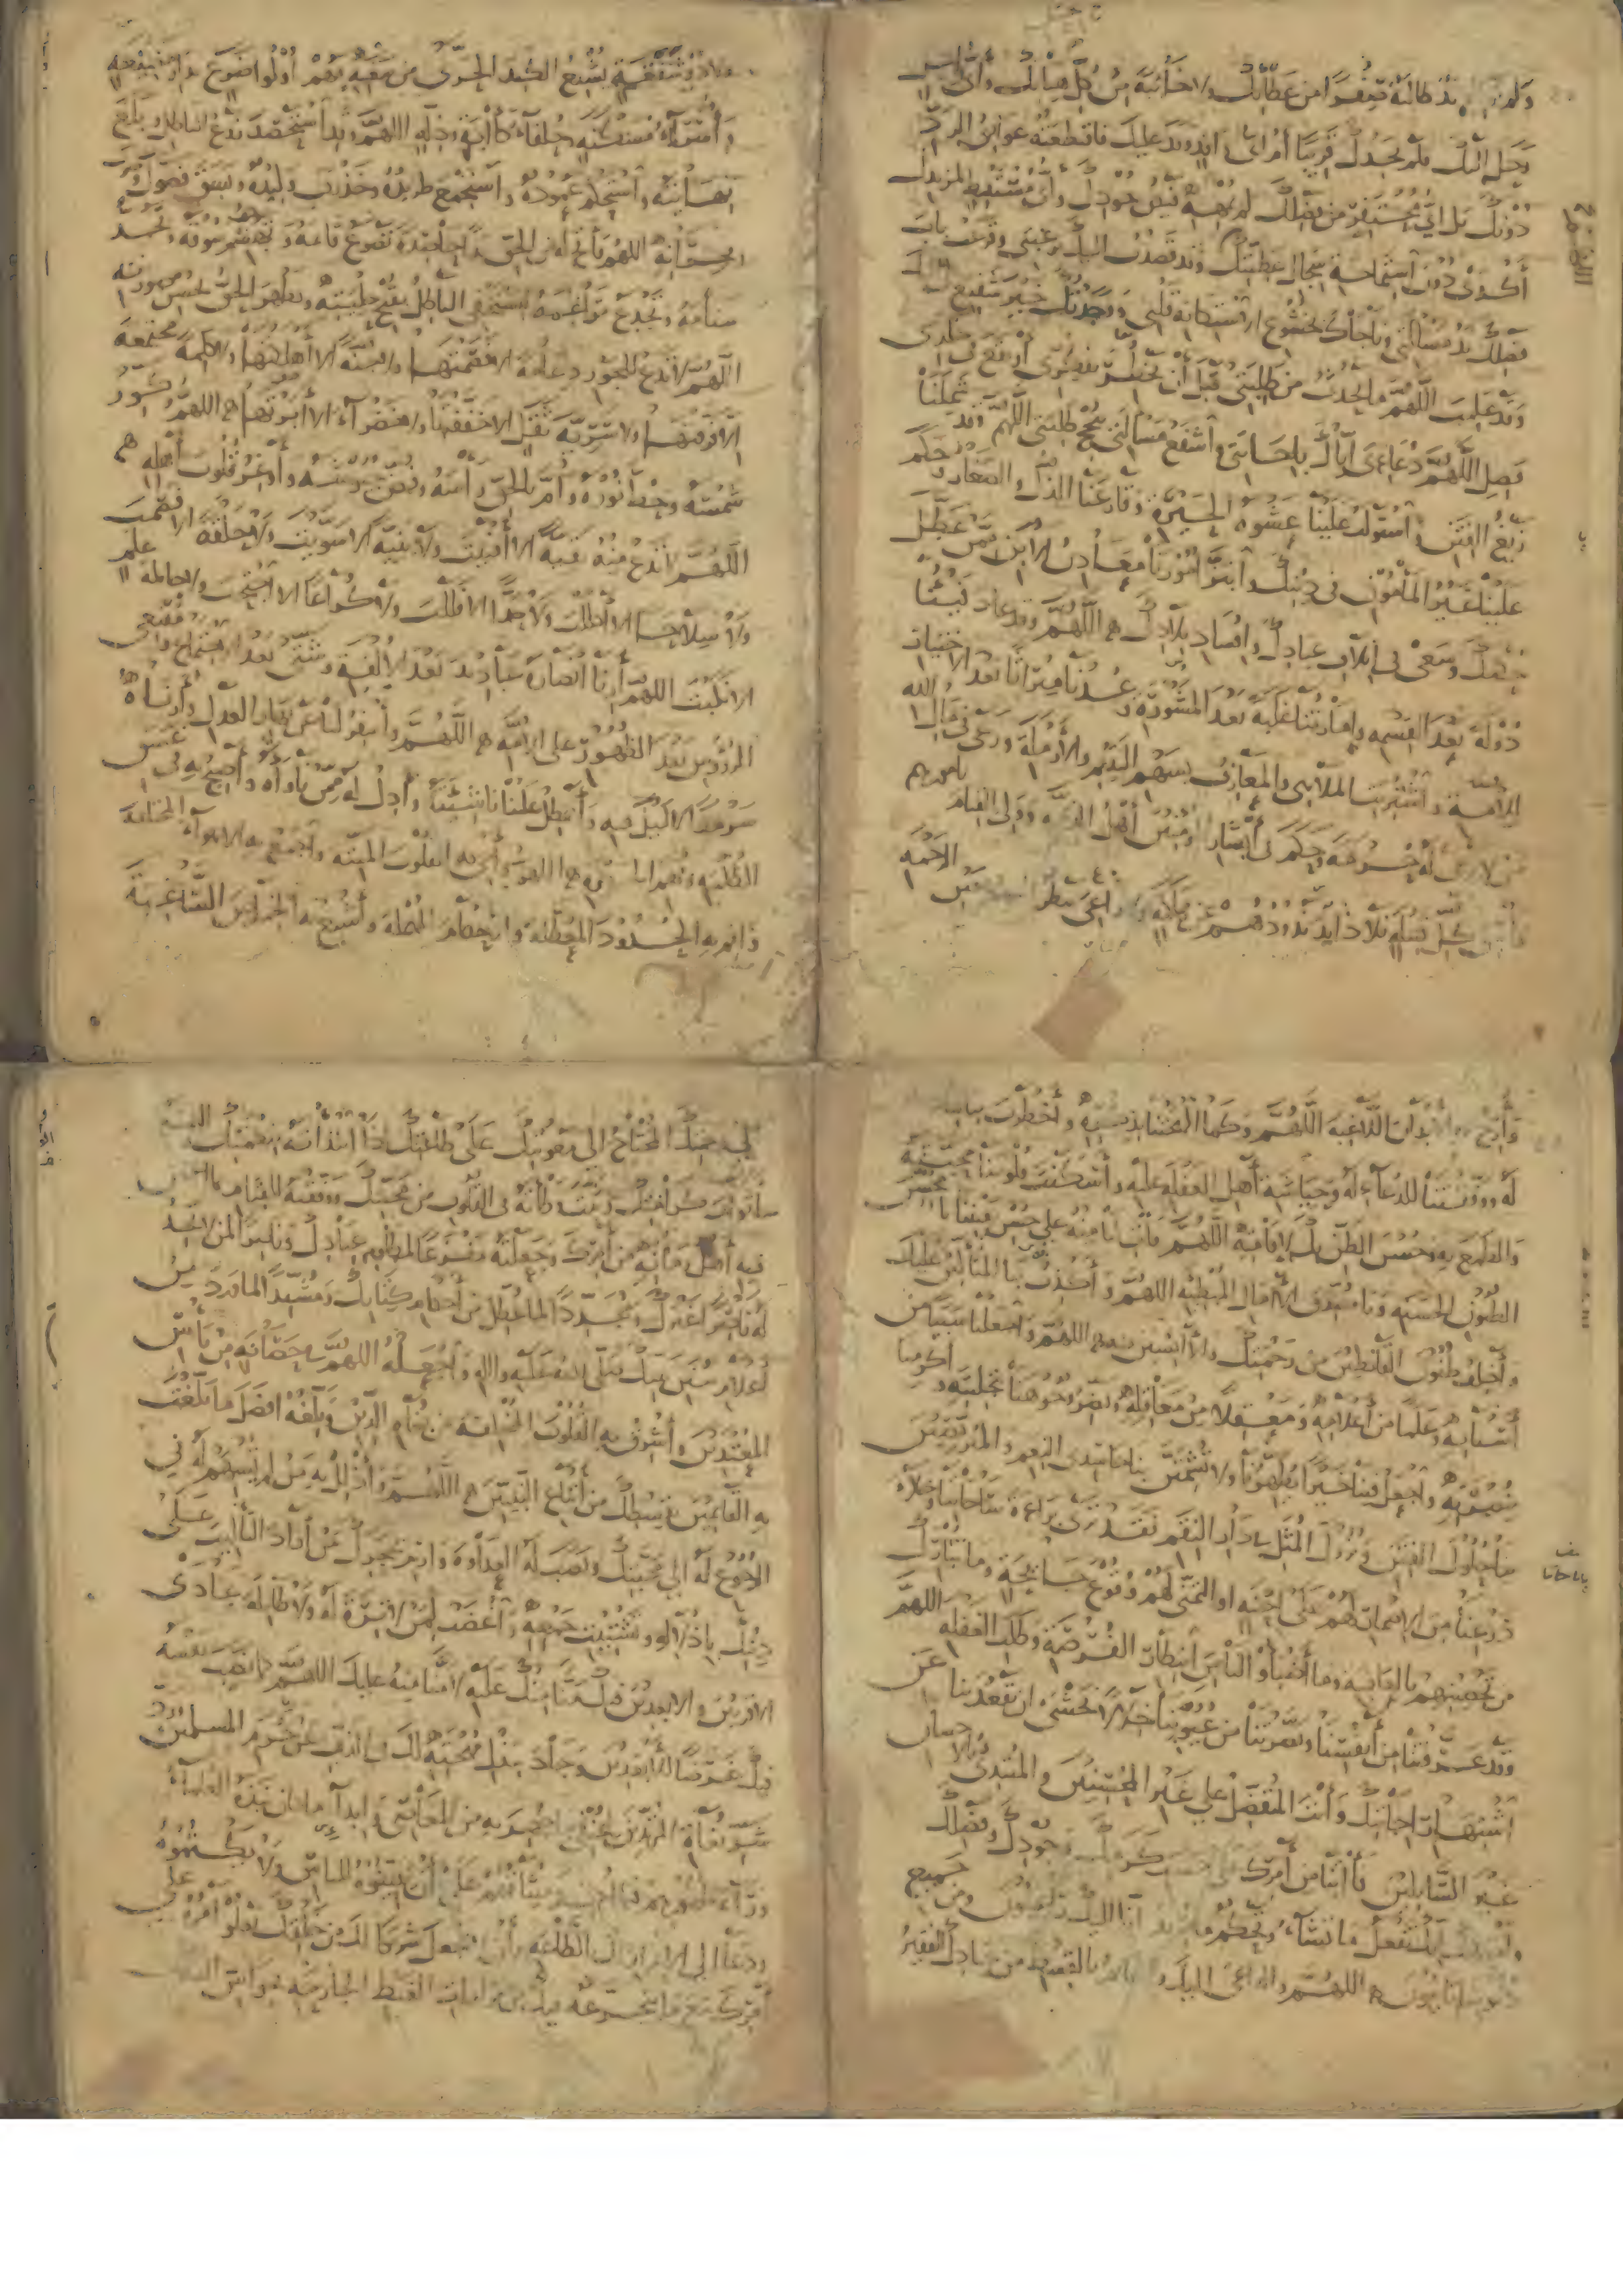 ولم يد طالبة صفرا من عطائك ولا خائبة من كل هباتك وأى راحل
رحل إليك فلم يجدك قريبا أم أى وافد وفد عليك فاقتطعته عوائق الرد
دونك بل أى مستنبط لمزيدك
أكدى دون استماحة سجال عطيتك وقد قصدت إليك برغبتى وقرعت باب
فضلك يد مسألتى وناجاك بخشوع الاستكانة قلبى ووجدتك خير شفيع لى إليك
وقد علمت اللهم ما يحدث من طلبتى قبل أن يخطر بفكرى أو يقع فى خلدى
فصل اللهم دعاءى إياك بإجابتى واشفع مسألتى بنجح طلبتى اللهم وقد شملنا
زيغ الفتن واستولت علينا غشوة الحيرة وقارعنا الذل والصغار وحكم
علينا غير المأمونين فى دينك وابتز أمورنا معادن الابن ممن عطل
حكمك وسعى فى إتلاف عبادك وإفساد بلادك اللهم وقد عاد فيئنا
دولة بعد القسمة وإمارتنا غلبة بعد المشورة وعدنا ميراثا بعد الاختيار
للأمة واشتريت الملاهى والمعازف بسهم اليتيم والأرملة ورعى فى مال الله
من لا يرعى له حرمة وحكم فى أبشار المؤمنين أهل الذمة وولى القيام بأمورهم
فاسق كل قبيلة فلا ذائد يذودهم عن هلكة ولا راعى ينظر إليهم بعين الرحمة
ولا ذو شفقة يشبع الكبد الحرى من مسغبة فهم أولوا ضرع بدار مضيعة
وأسراء مسكنة وحلفاء كآبة وذلة اللهم وقد استحصد زرع الباطل وبلغ
نهايته واستحكم عموده واستجمع طريده وخذرف وليده وبسق
بجرانه اللهم فأتح له من الحق يدا حاصدة تصرع قائمه وتهشم سوقه وتجذ
سنامه وتجدع مراغمه ليستخفى الباطل بقبح حليته ويظهر الحق بحسن صورته
اللهم لا تدع للجور دعامة إلا قصمتها ولا جنة إلا هتكتها ولا كلمة مجتمعة
إلا فرقتها ولا سرية ثقل إلا خففتها ولا خضراء إلا أبرتها اللهم وكور
شمسه وحط نوره وأم بالحق رأسه وفض جيوشه وأرعب قلوب أهله
اللهم لا تدع منه بقية إلا أفنيت ولا بنية إلا سويت ولا حلقة إلا فصمت
ولا سلاحا إلا أكللت ولا حدا إلا فللت ولا كراعا إلا اجتحت ولا حاملة علم
إلا نكبت اللهم أرنا أنصاره عباديد بعد الألفة وشتى بعد الاجتماع ومقنعى
الرؤس بعد الظهور على الأمة اللهم وأسفر لنا عن نهار العدل وأرناه
سرمدا لا ليل فيه وأهطل علينا ناشئته وأدل له ممن ناواه وأصبح به فى غسق
الظلمة اللهم وأحى به القلوب الميتة واجمع به الأهواء المختلفة
وأقم به الحدود المعطلة والأحكام المهملة وأشبع به الخماص الساغبة
وأرح به الأبدان اللاغبة اللهم وكما ألهجتنا بذكره وأخطرت ببالنا
له ووفقتنا للدعاء له وحياشة أهل الغفلة عليه وأسكنت قلوبنا محبته
والطمع به وحسن الظن بك لإقامته اللهم فآت لنا منه على حسن يقيننا يا محقق
الظنون الحسنة ويا مصدق الآمال المبطئة اللهم وأكذب به المتألين عليك
وأخلف ظنون القانطين من رحمتك والآيسين منه اللهم واجعلنا سببا من
أسبابه وعلما من أعلامه ومعقلا من معاقله ونضر وجوهنا بتحليته وأكرمنا
بنصرته واجعل فينا خيرا يظهرنا ولا تشمتن بنا حاسدى النعم والمتربصين
بنا حلول الفتن ونزول المثل بدار النقم فقد ترى براءة ساحاتنا وخلاء
ذرعنا من الاضمار لهم على إحنة أو التمنى لهم وقوع جائحة وما تنازل
من تحصينهم بالعافية وما أضبأوا لنا من انتظار الفرصة وطلب الغفلة اللهم
وقد عرفتنا من أنفسنا وبصرتنا من عيوبنا خلالا نخشى أن تقعد بنا عن
اشتهار إجابتك وأنت المتفضل على غير المحسنين والمبتدئ بالإحسان
غير السائلين فأتنا من أمرك على حسب كرمك وجودك وفضلك
إنك تفعل ما تشاء وتحكم ما تريد إنا إليك راغبون ومن جميع
ذنوبنا تائبون اللهم والداعى إليك والقائم بالقسط من عبادك الفقير
إلى رحمتك المحتاج إلى معونتك على طاعتك إذا ابتدأته بنعمتك وألبسته
أثواب كرامتك وثبت وطأته فى القلوب من محبتك ووفقته للقيام بما أغمض
فيه أهل زمانه من أمرك وجعلته مفزعا لمظلوم عبادك وناصرا لمن لا يجد
له ناصرا غيرك ومجددا لما عطل من أحكام كتابك ومشيدا لما ورد من
أعلام سنن نبيك صلى الله عليه وآله واجعله اللهم فى حصانة من بأس
المعتدين وأشرق به القلوب المختلفة من بغاة الدين وبلغه أفضل ما بلغت
به القائمين بقسطك من أتباع النبيين اللهم وأذلل به من لم تسهم له فى
الرجوع له إلى محبتك ونصب له العداوة وارم بحجرك من أراد التأليب على
دينك بإذلاله وتشتيت جمعه واغضب لمن لا ترة له ولا طائلة عادى
الأقربين والأبعدين فيك منا منك عليه لا منا منه عليك اللهم فكما نصب نفسه
فيك غرضا للأبعدين وجاد ببذل مهجته لك فى الذب عن حرم المسلمين ورد
شر بغاة المرتدين
وراء ظهورهم مما أخذ ميثاقهم على أن يبينوه للناس ولا يكتموه
ودعا إلى الإقرار لك بالطاعة وأن لا يجعل شريكا لك من خلقك يعلو أمره على
أمرك مع ما يتجرعه فيك من مرارات الغيظ الجارحة بحواس